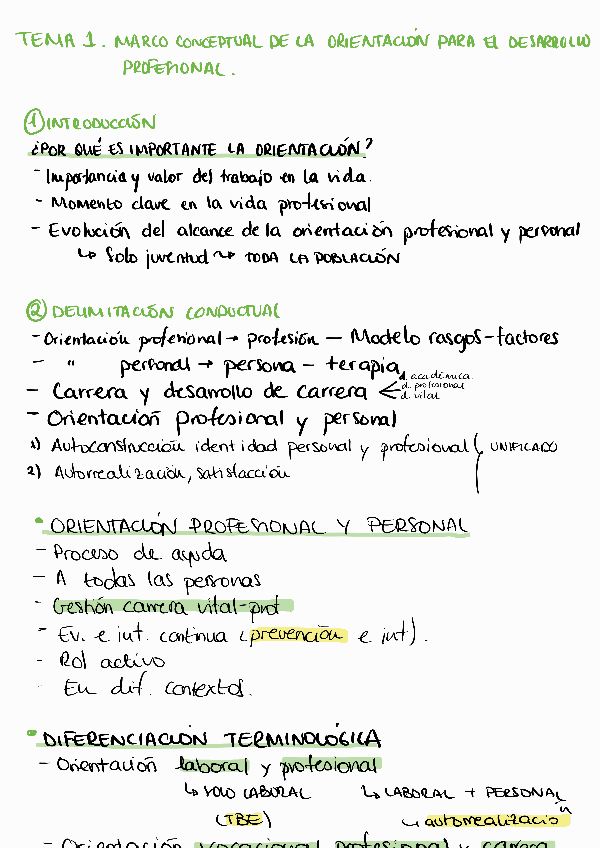 TEMA 1. MARCO CONCEPTUAL DE LA ORIENTACIÓN PARA EL DESARROLLO
PROFESIONAL.
① INTRODUCCIÓN
¿POR QUÉ ES IMPORTANTE LA ORIENTACIÓN?
- Importancia y valor del trabajo en la vida.
- Momento clave en la vida profesional
- Evolución del alcance de la orientación profesional y personal
↳ Solo juventud ⤳ TODA LA POBLACIÓN
② DELIMITACIÓN CONDUCTUAL
- Orientación profesional → profesión — Modelo rasgos-factores
- " personal → persona - terapia
- Carrera y desarrollo de carrera < d. académica
d. profesional
d. vital
- Orientación profesional y personal
1) Autoconstrucción identidad personal y profesional } UNIFICADO
2) Autorrealización, satisfacción
• ORIENTACIÓN PROFESIONAL Y PERSONAL
- Proceso de ayuda
- A todas las personas
- Gestión carrera vital-prof
- Ev. e int. continua (prevención e int).
- Rol activo
- En dif. contextos.
• DIFERENCIACIÓN TERMINOLÓGICA
- Orientación laboral y profesional
↳ SOLO LABORAL ↳ LABORAL + PERSONAL
(TBE) ↳ autorrealización
- Orientación vocacional profesional y carrera